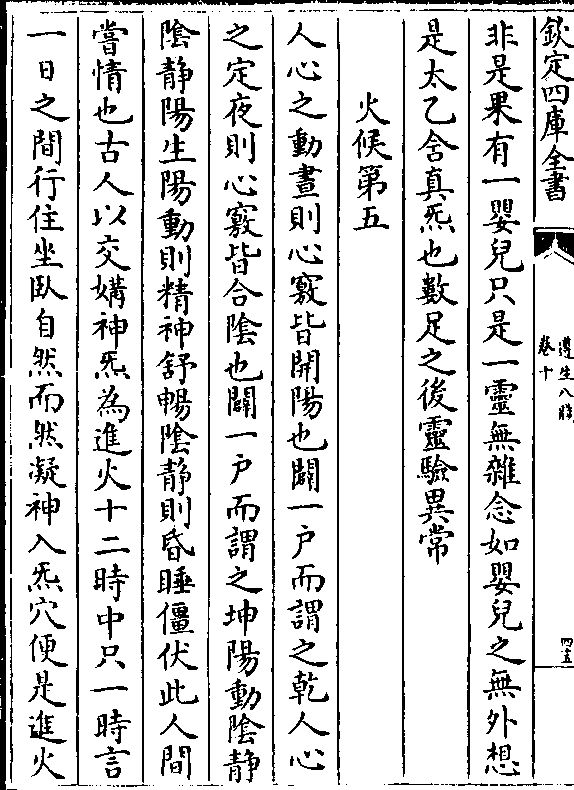 欽定四庫全書
遵生八牋
卷十
四五
非是果有一嬰兒只是一靈無雜念如嬰兒之無外想
是太乙含真炁也數足之後靈驗異常
火候第五
人心之動晝則心竅皆開陽也闢一户而謂之乾人心
之定夜則心竅皆合陰也闢一户而謂之坤陽動陰静
陰静陽生陽動則精神舒暢陰静則昏睡僵伏此人間
嘗情也古人以交媾神炁為進火十二時中只一時言
一日之間行住坐臥自然而然凝神入炁穴便是進火